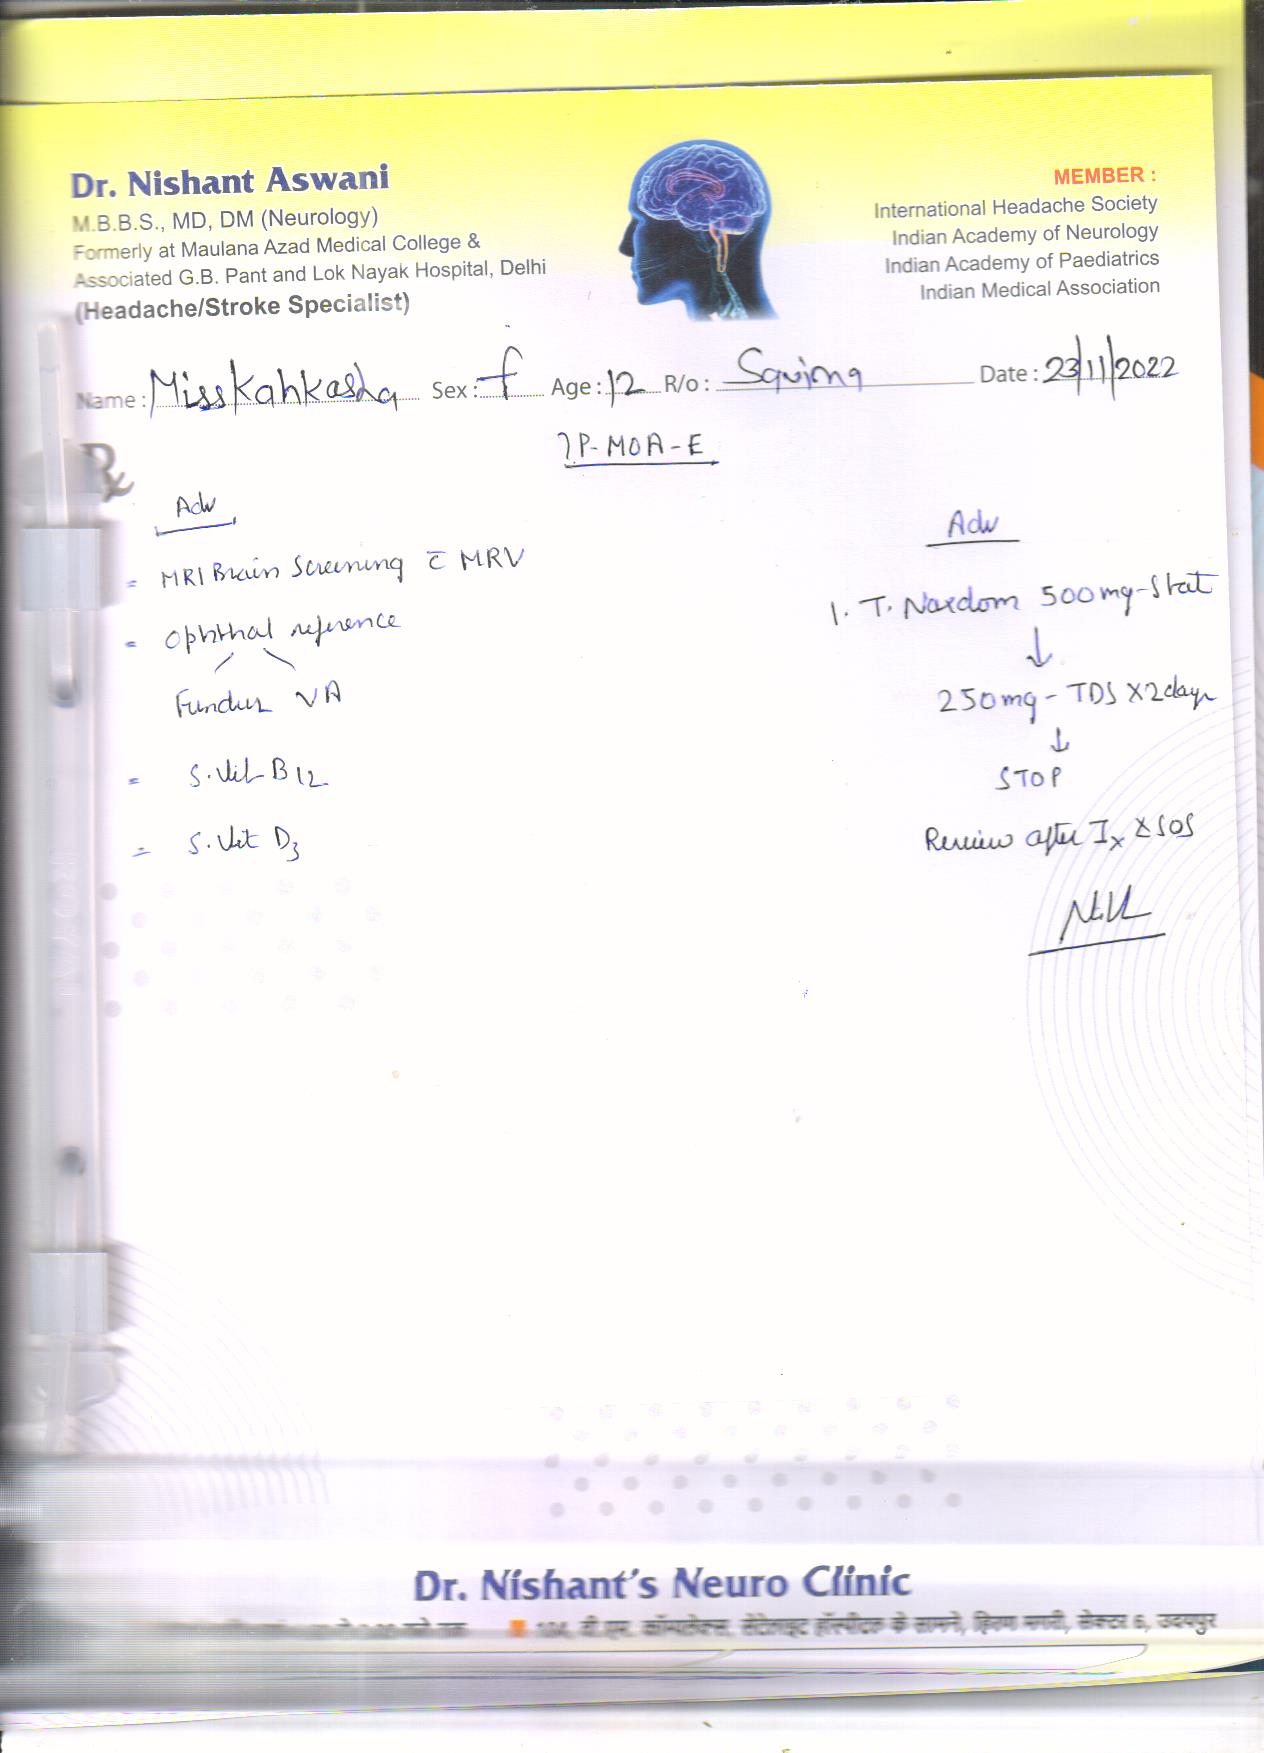 Dr. Nishant Aswani
M.B.B.S., MD, DM (Neurology)
Formerly at Maulana Azad Medical College &
Associated G.B. Pant and Lok Nayak Hospital, Delhi
(Headache/Stroke Specialist)
MEMBER :
International Headache Society
Indian Academy of Neurology
Indian Academy of Paediatrics
Indian Medical Association
Name : Miss Kahkasha Sex : f Age : 12 R/o : Date : 23/11/2022
Rx
P-MOA-E
Adv
= MRI Brain Screening c̅ MRV
= Ophthal reference
Fundus VA
= S. Vit B12
= S. Vit D3
Adv
1. T. Naxdom 500mg-Stat
↓
250mg - TDS X 2 days
↓
STOP
Review after Ix & SOS
Dr. Nishant's Neuro Clinic
104, वी.एम. कॉम्पलेक्स, सेटेलाइट हॉस्पीटल के सामने, हिरण मगरी, सेक्टर 6, उदयपुर